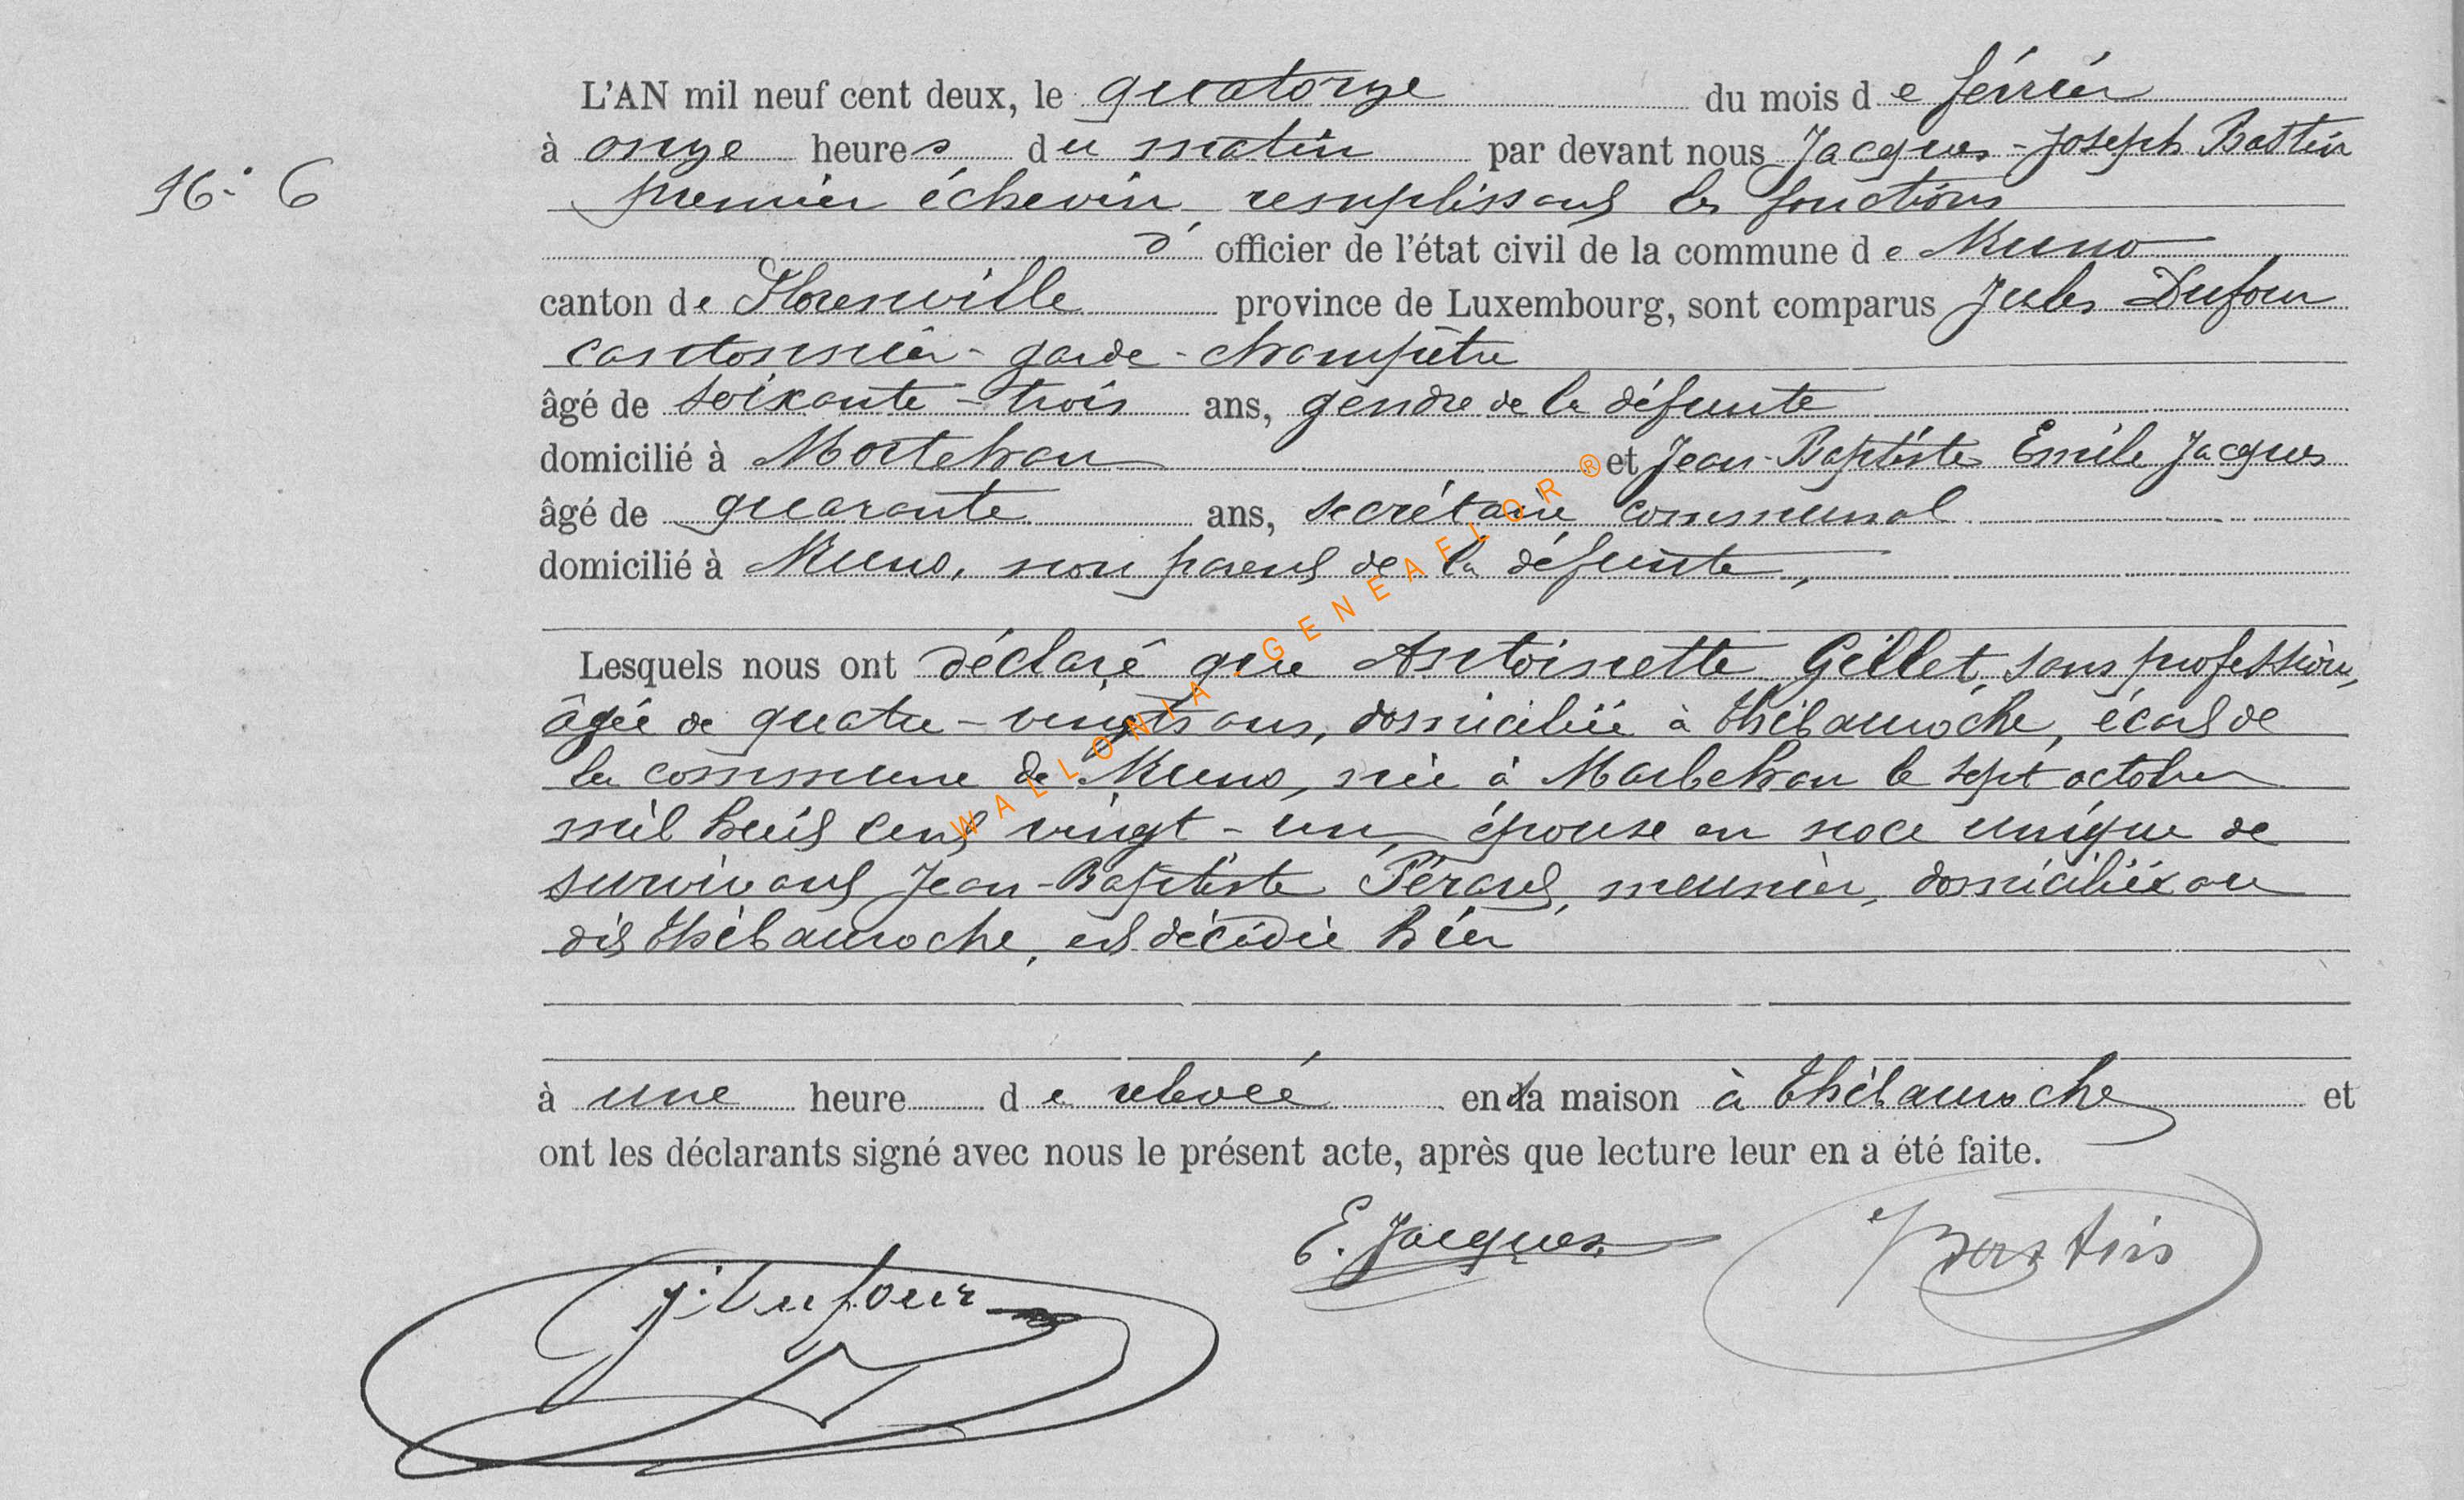 L'AN mil neuf cent deux, le quatorze du mois de février
à onze heures du matin par devant nous Jacques-Joseph Bastin
N° 6
premier échevin, remplissant les fonctions
d' officier de l'état civil de la commune de Muno
canton de Florenville province de Luxembourg, sont comparus Jules Dufour
cantonnier-garde-champêtre
âgé de soixante-trois ans, gendre de la défunte
domicilié à Mortehan et Jean-Baptiste Emile Jacques
âgé de quarante ans, secrétaire communal
domicilié à Muno, non parent de la défunte,
Lesquels nous ont déclaré que Antoinette Gillet, sans profession,
âgée de quatre-vingts ans, domiciliée à Thibauroche, écart de
la commune de Muno, née à Marbehan le sept octobre
mil huit cent vingt-un, épouse en noce unique de
survivant Jean-Baptiste Pérard, meunier, domicilié au
dit Thibauroche, est décédée hier
à une heure de relevée en la maison à Thibauroche et
ont les déclarants signé avec nous le présent acte, après que lecture leur en a été faite.
E. Jacques
Bastin
J. Dufour
WALLONIA - GENEAFLOR ®